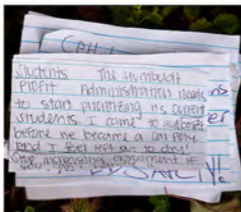 CPH
Students The Humboldt
Profit Administration needs ns
to start prioritizing its current
students. I came to Humboldt er
before we became a Cal Poly
and I feel left out to dry!
Stop increasing enrollment if